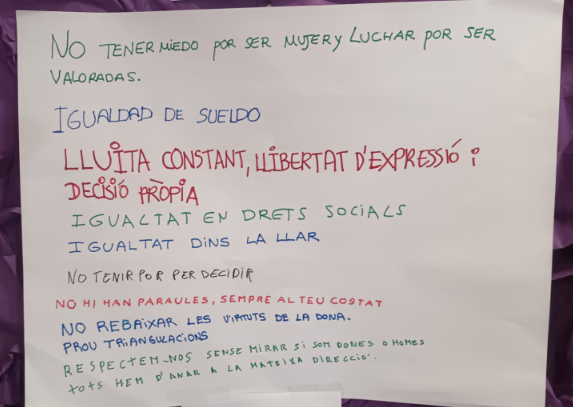 NO TENER MIEDO POR SER MUJER Y LUCHAR POR SER
VALORADAS.
IGUALDAD DE SUELDO
LLUITA CONSTANT, LLIBERTAT D'EXPRESSIÓ i
DECISIÓ PRÒPIA
IGUALTAT EN DRETS SOCIALS
IGUALTAT DINS LA LLAR
NO TENIR POR PER DECIDIR
NO HI HAN PARAULES, SEMPRE AL TEU COSTAT
NO REBAIXAR LES VIRTUTS DE LA DONA.
PROU TRIANGULACIONS
RESPECTEM-NOS SENSE MIRAR SI SOM DONES O HOMES
TOTS HEM D'ANAR A LA MATEIXA DIRECCIÓ.